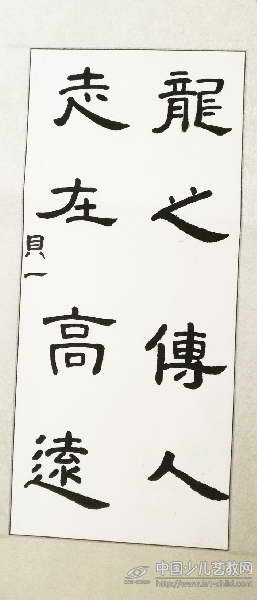 龍之傳人
志在高遠
貝一
中国少儿艺教网
http://www.art-child.com